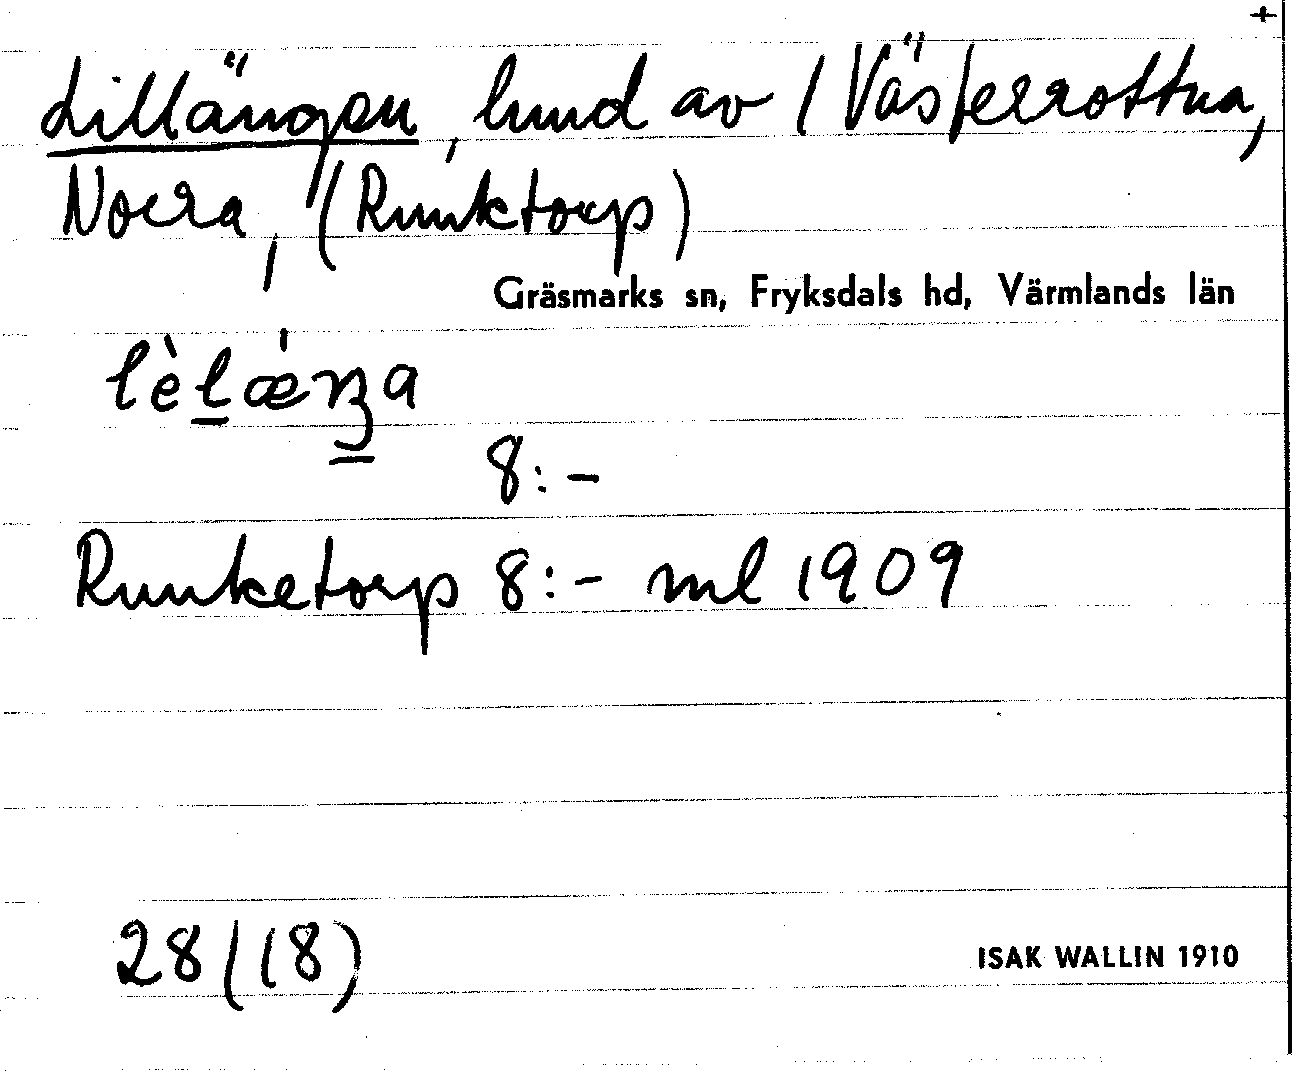 +
Lillängen, lund av 1 Västerrottna,
Norra, (Runktorp)
Gräsmarks sn, Fryksdals hd, Värmlands län
8:-
Runketorp 8:- ml 1909
28 (18)
ISAK WALLIN 1910